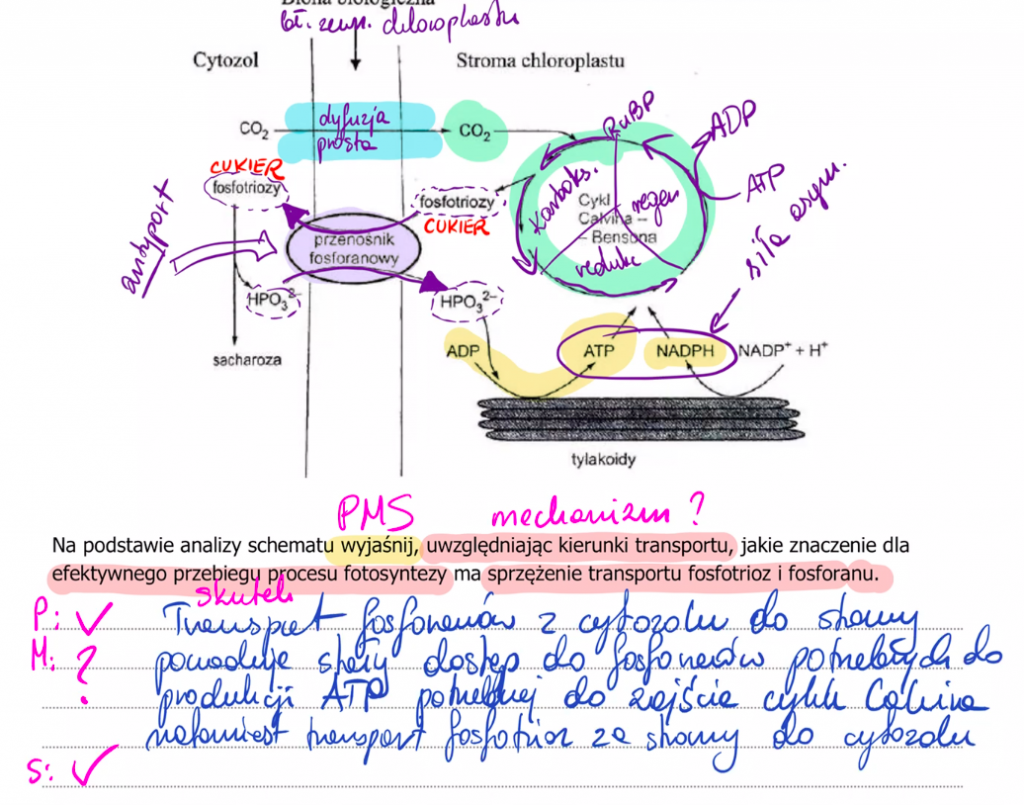 Błona biologiczna
bł. zewn. chloroplastu
Cytozol
Stroma chloroplastu
CO₂
dyfuzja
prosta
CO₂
RuBP
ADP
ATP
CUKIER
fosfotriozy
fosfotriozy
CUKIER
karboks.
regen
reduk
Cykl
Calvina –
– Bensona
siła asym.
antyport
przenośnik
fosforanowy
HPO₃²⁻
HPO₃²⁻
sacharoza
ADP
ATP
NADPH
NADP⁺ + H⁺
tylakoidy
PMS mechanizm?
Na podstawie analizy schematu wyjaśnij, uwzględniając kierunki transportu, jakie znaczenie dla
efektywnego przebiegu procesu fotosyntezy ma sprzężenie transportu fosfotrioz i fosforanu.
skutek
P: ✓ Transport fosforanów z cytozolu do stromy
M: ? powoduje stały dostęp do fosforanów potrzebnych do
produkcji ATP potrzebnej do zajścia cyklu Calvina
natomiast transport fosfotrioz ze stromy do cytozolu
S: ✓